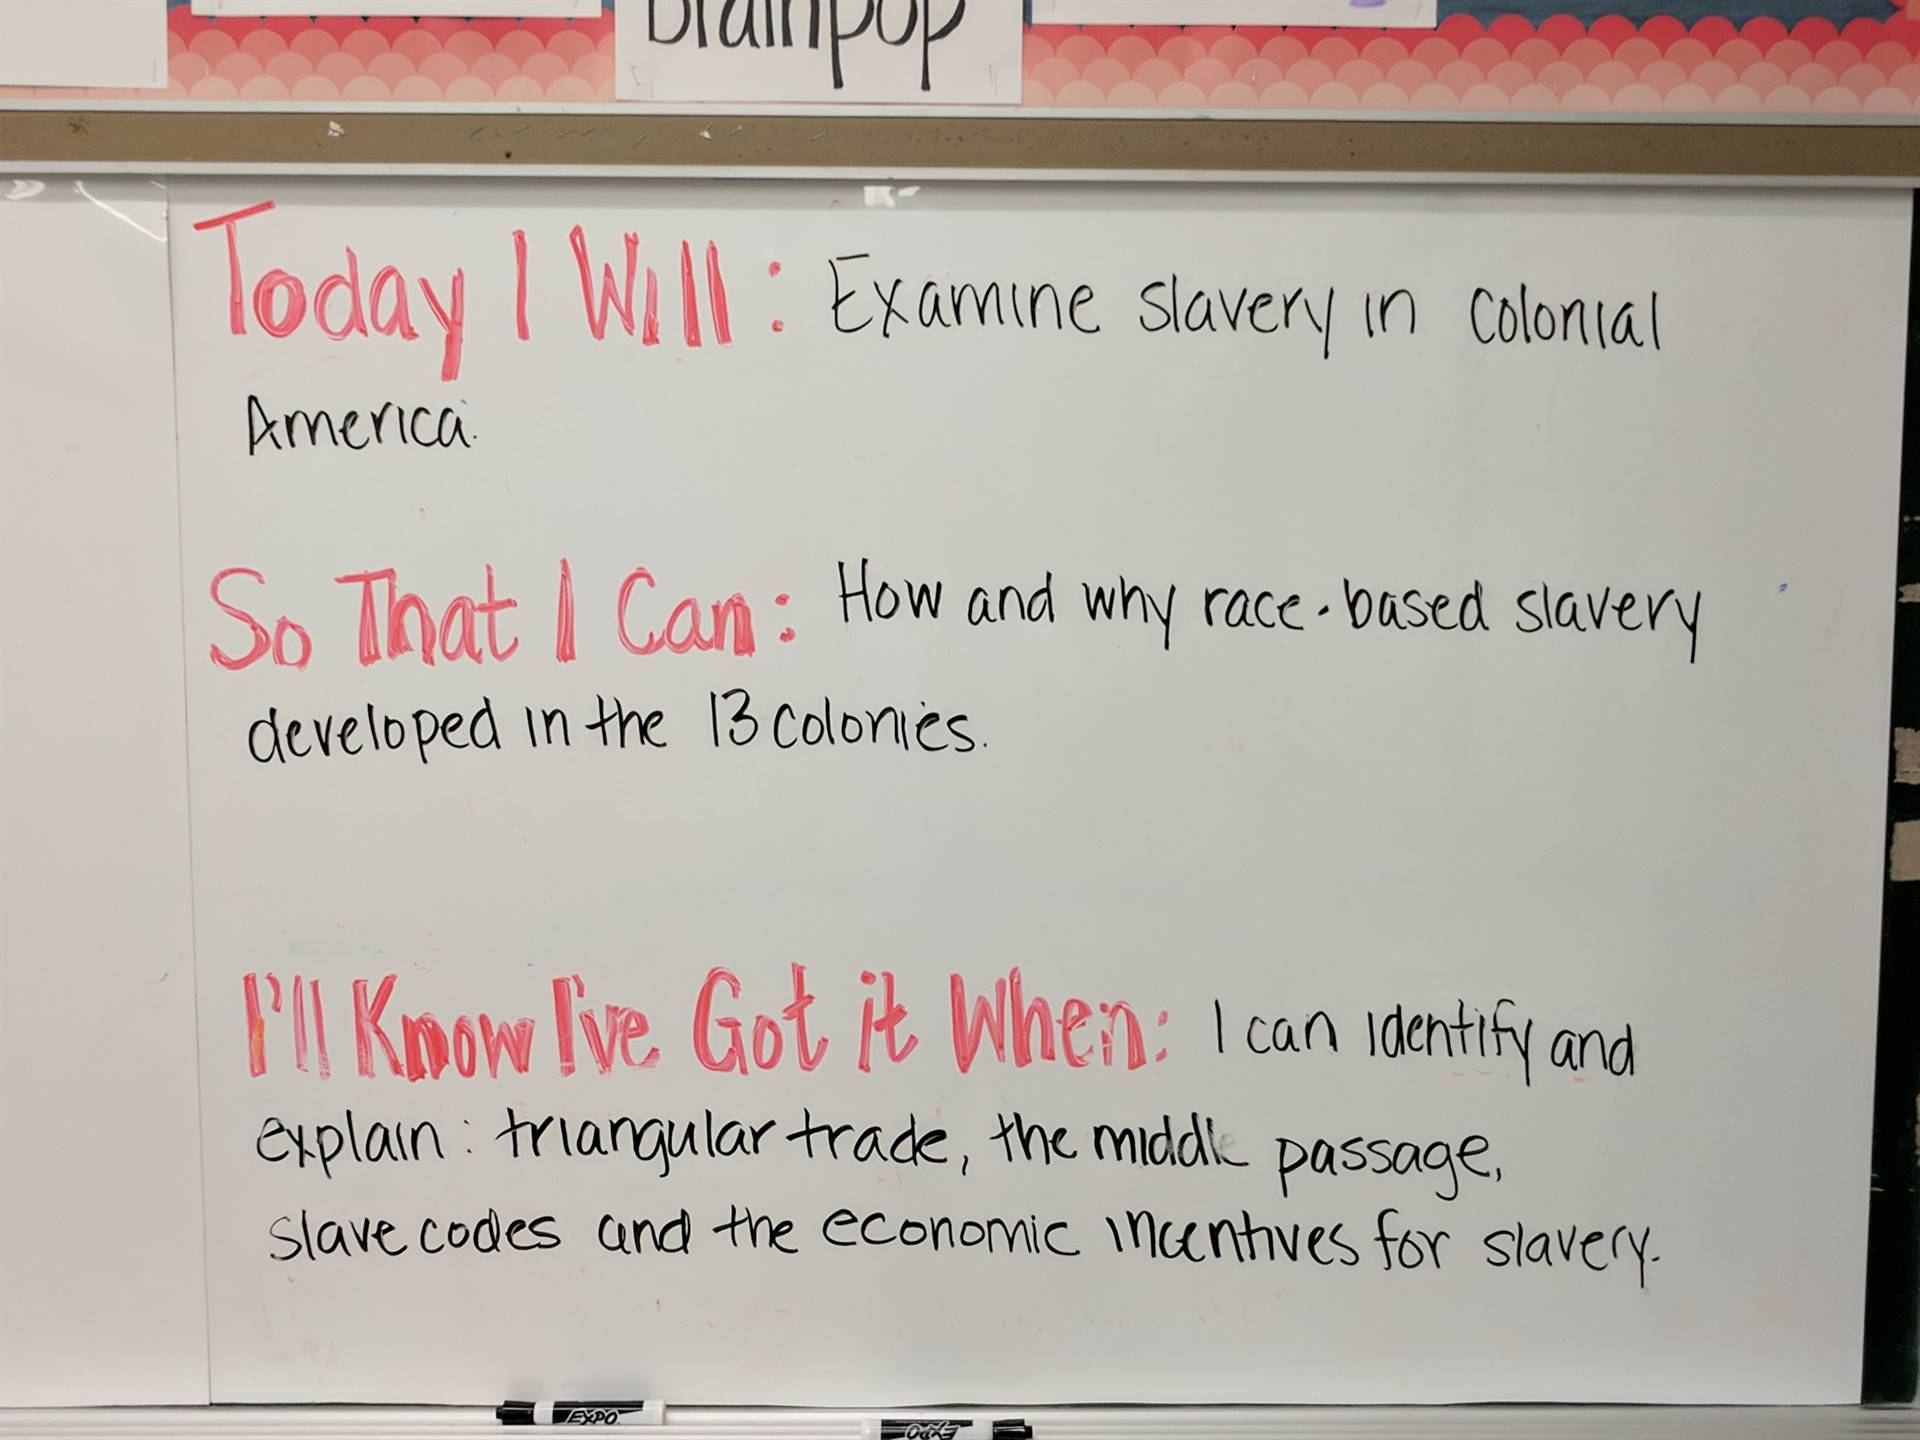 brainpop
Today I Will: Examine slavery in colonial
America.
So That I Can: How and why race-based slavery
developed in the 13 colonies.
I'll Know I've Got it When: I can identify and
explain: triangular trade, the middle passage,
slave codes and the economic incentives for slavery.
EXPO
EXPO